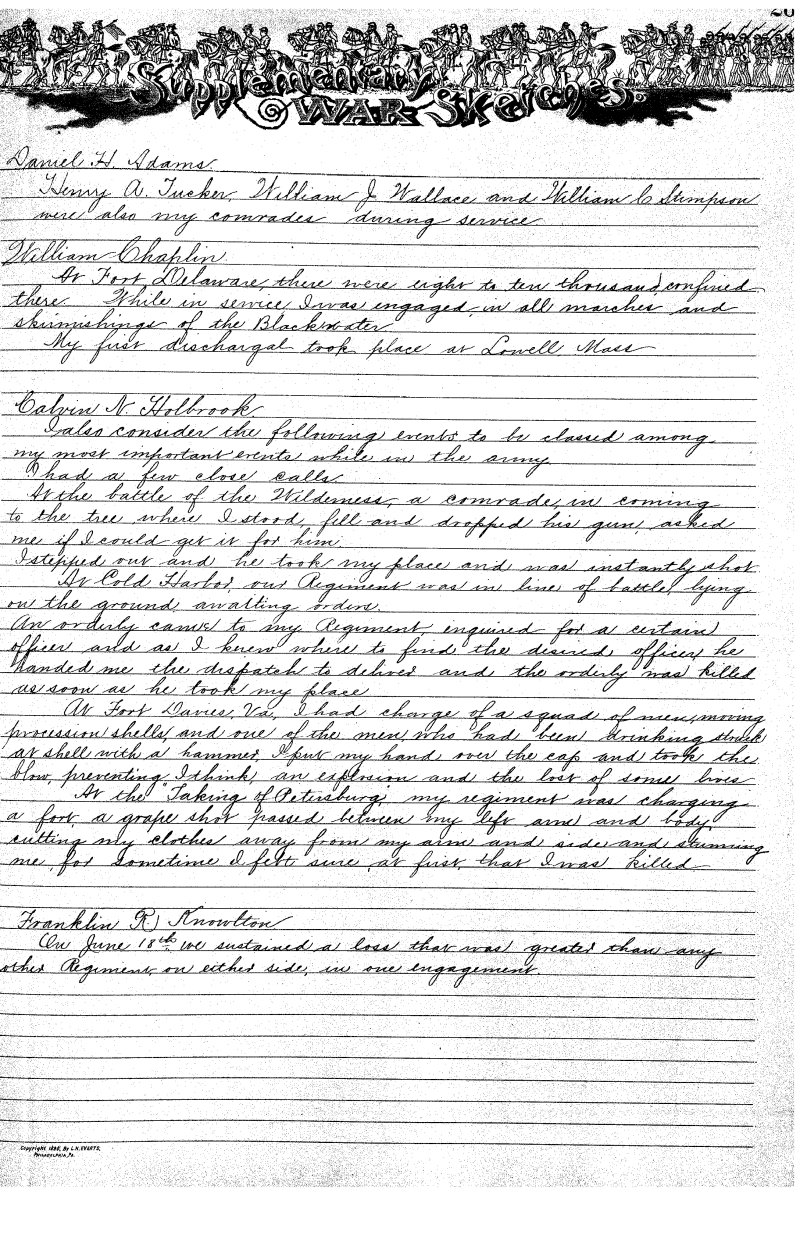 Supplementary
WAR Sketches.
Daniel H. Adams.
Henry A. Tucker, William J. Wallace and William C Stimpson
were also my comrades during service.
William Chaplin.
At Fort Delaware, there were eight to ten thousand confined
there. While in service I was engaged in all marches and
skirmishings of the Blackwater
My first dischargal took place at Lowell Mass
Calvin N. Holbrook.
I also consider the following events to be classed among
my most important events while in the army.
I had a few close calls.
At the battle of the Wilderness, a comrade, in coming
to the tree where I stood, fell and dropped his gun, asked
me if I could get it for him.
I stepped out and he took my place and was instantly shot
At Cold Harbor, our Regiment was in line of battle, lying
on the ground, awaiting orders.
An orderly came to my Regiment, enquired for a certain
officer and as I knew where to find the desired officer, he
handed me the dispatch to deliver and the orderly was killed
as soon as he took my place
At Fort Davies, Va, I had charge of a squad of men, moving
procession shells, and one of the men, who had been drinking struck
at shell with a hammer. I put my hand over the cap and took the
blow, preventing I think, an explosion and the lost of some lives
At the "Taking of Petersburg", my regiment was charging
a fort, a grape shot passed between my left arm and body,
cutting my clothes away from my arm and side and stunning
me, for sometime I felt sure, at first, that I was killed
Franklin R. Knowlton
On June 18th we sustained a loss that was greater than any
other Regiment on either side, in one engagement.
Copyright 1886, By L.H. EVERTS,
PHILADELPHIA, PA.